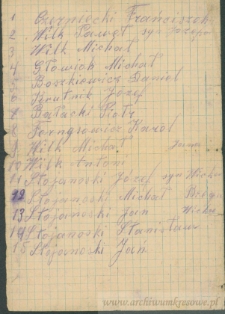 1 Czerniecki Franciszek
2 Wilk Paweł syn Józefa
3 Wilk Michał
4 Głowiak Michał
5 Daniel
6 Józef
7 Bałacki Piotr
8 Karol
9 Wilk Michał Jana
10 Wilk Antoni
11 Stojanoski Józef syn
12 Stojanoski Michał
13 Stojanoski Jan
14 Stojanoski Stanisław
15 Stojanoski Jan
www.archiwumkresowe.pl